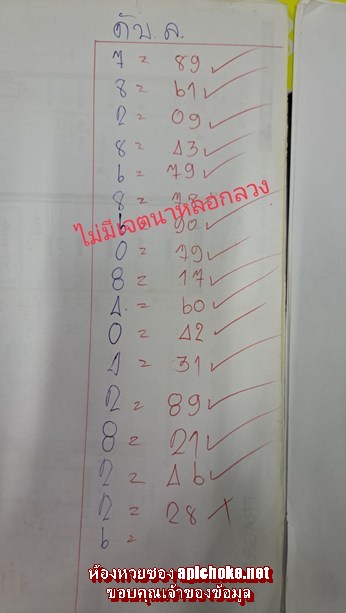 ดับ.ล.
7 = 89 ✓
8 = 61 ✓
2 = 09 ✓
8 = 43 ✓
6 = 79 ✓
8 =
ไม่มีเจตนาหลอกลวง
= 90 ✓
0 = 79 ✓
8 = 17 ✓
4 = 60 ✓
0 = 42 ✓
4 = 31 ✓
2 = 89 ✓
8 = 21 ✓
2 = 46 ✓
2 = 28 ✗
6 =
ห้องหวยซอง apichoke.net
ขอบคุณเจ้าของข้อมูล